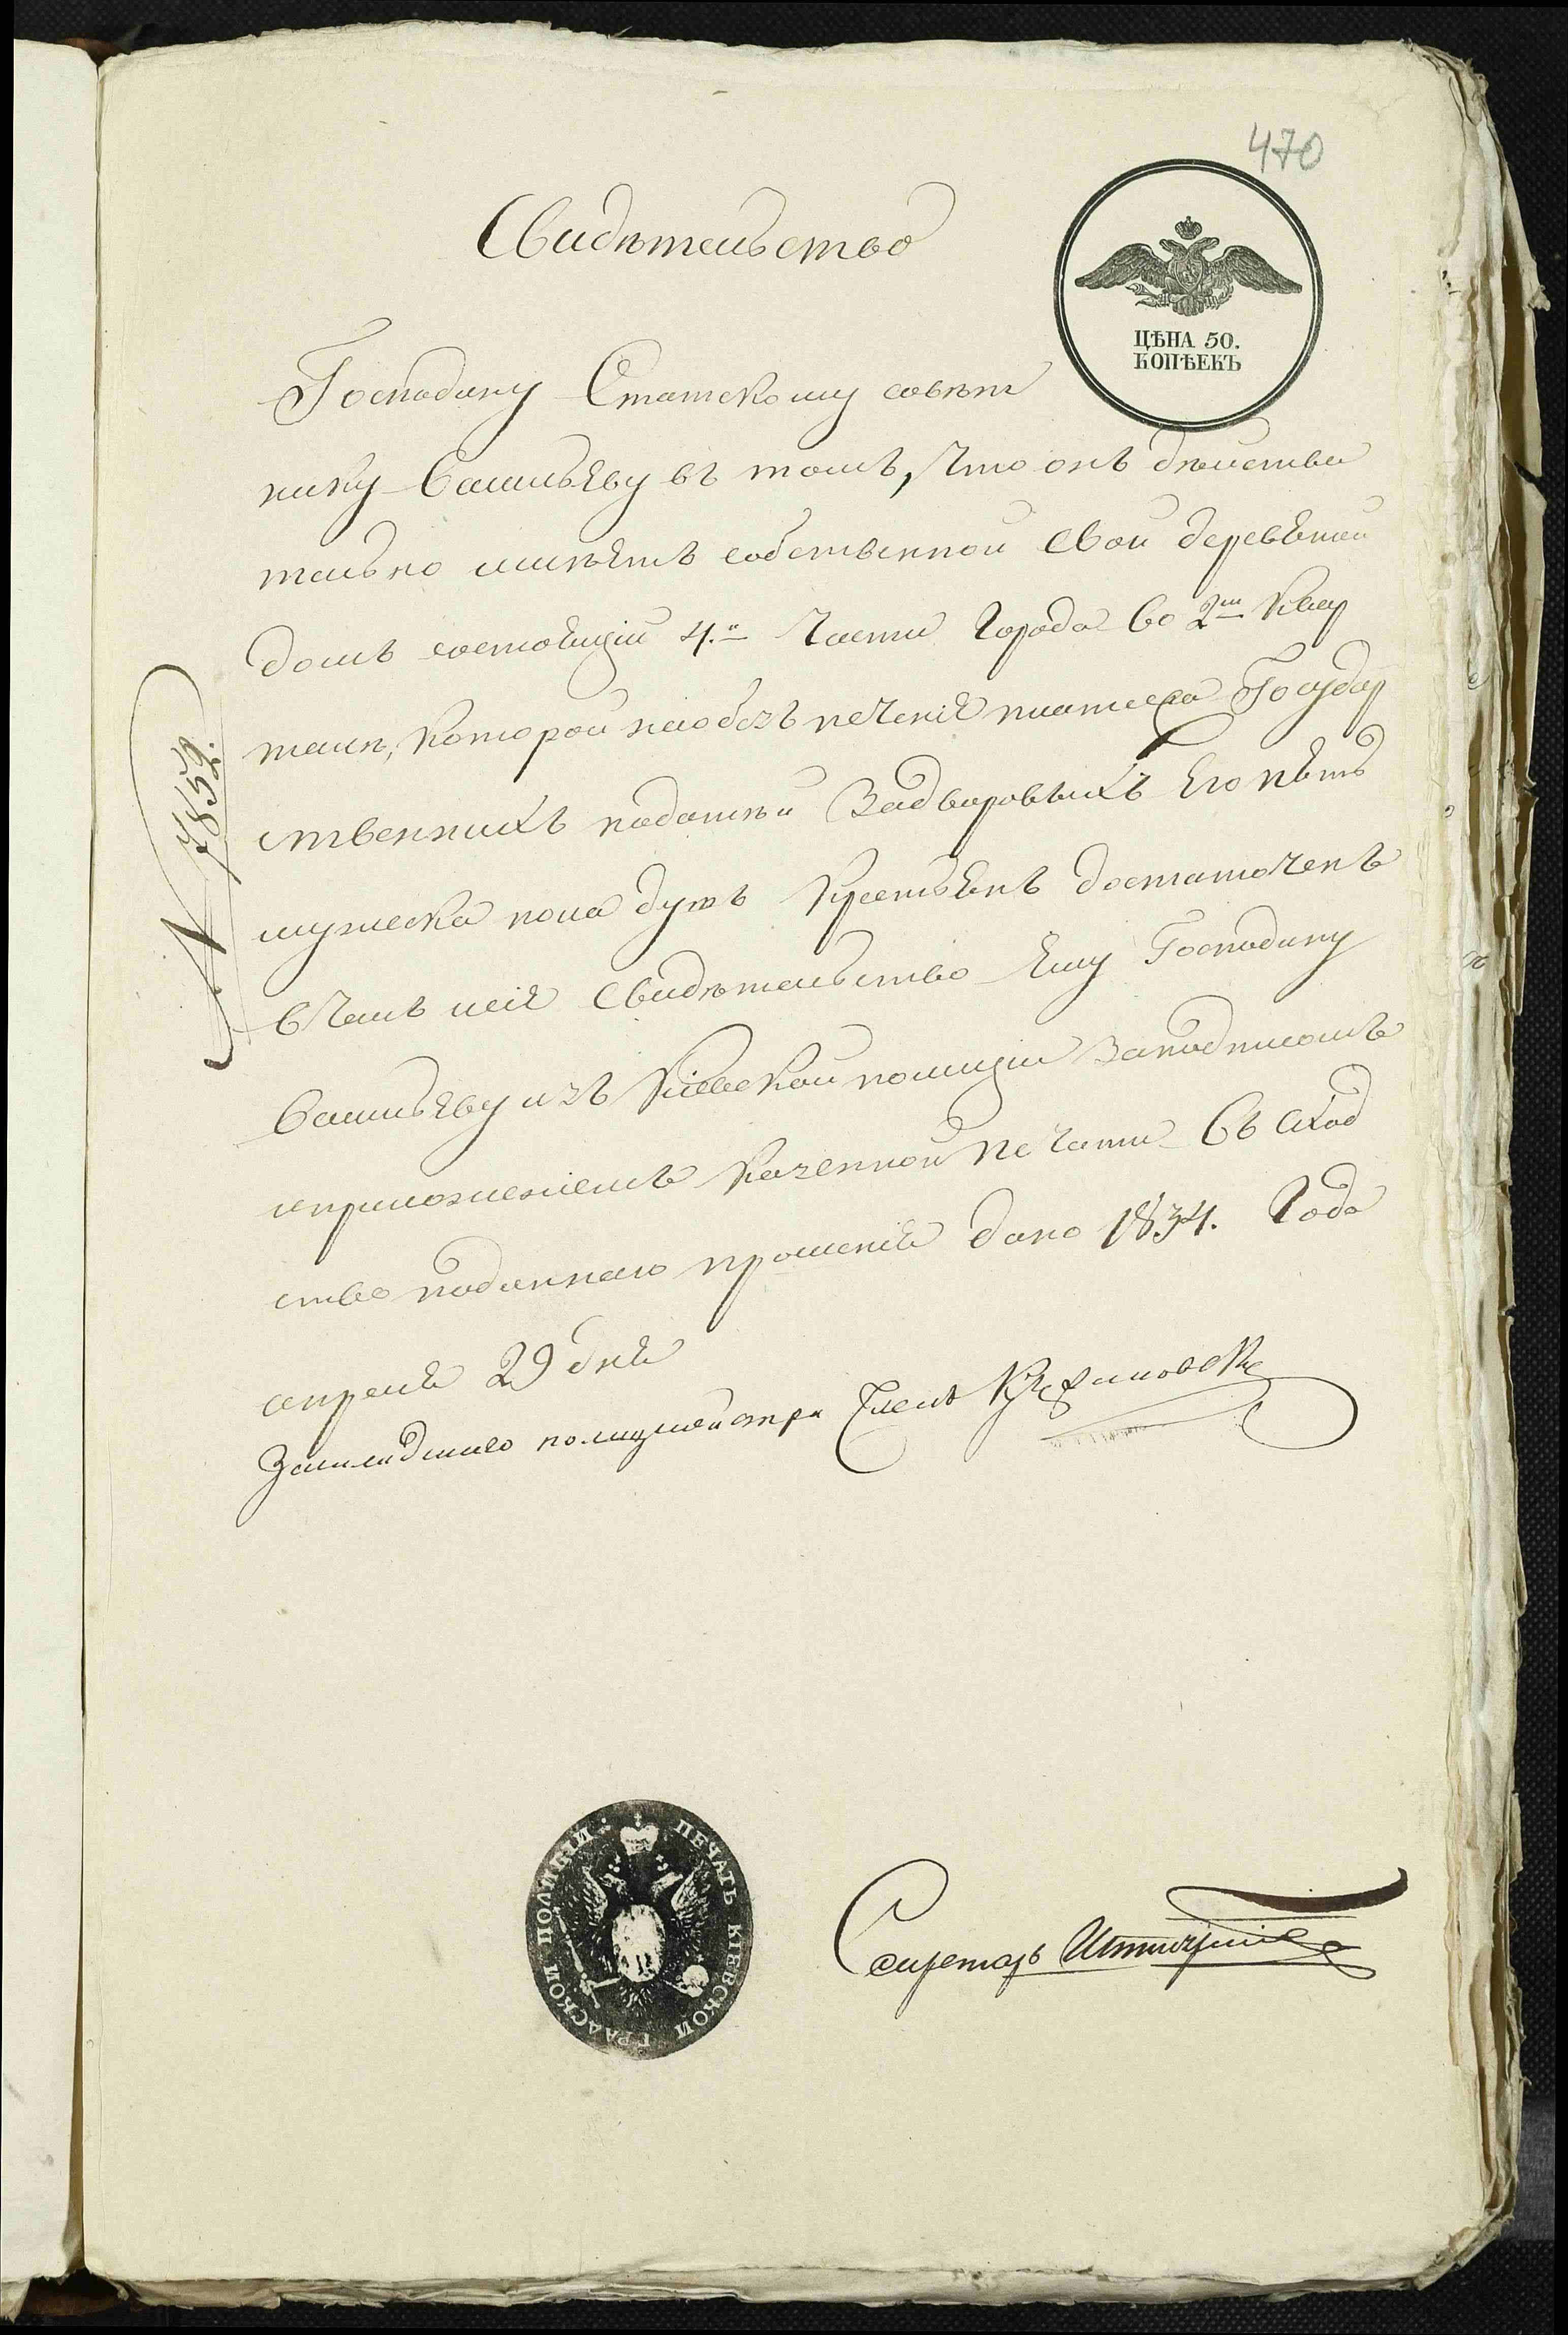 470
Свидѣтельство
ЦѢНА 50.
КОПѢЕКЪ
Господину Статскому совѣт
нику Васильеву въ томъ, что онъ дѣйстви
тельно имѣетъ собственной свой деревяной
домъ состоящій 4.й части города во 2мъ квар
талѣ, которой на обезпеченіе платежа Государ
ственныхъ податѣй Задворовыхъ Его пять
мужеска пола душъ крестьянъ достаточенъ
въ чемъ сіе свидѣтельство Ему Господину
Васильеву изъ Кіевской полиціи за подписомъ
и приложеніемъ казенной печати въ слѣд
ство поданнаго прошенія дано 1834. Года
апреля 29 дня
За полицмейстра Членъ
№ 7859.
ПЕЧАТЬ КІЕВСКОЙ ГРАДСКОЙ ПОЛИЦІИ
Секретарь